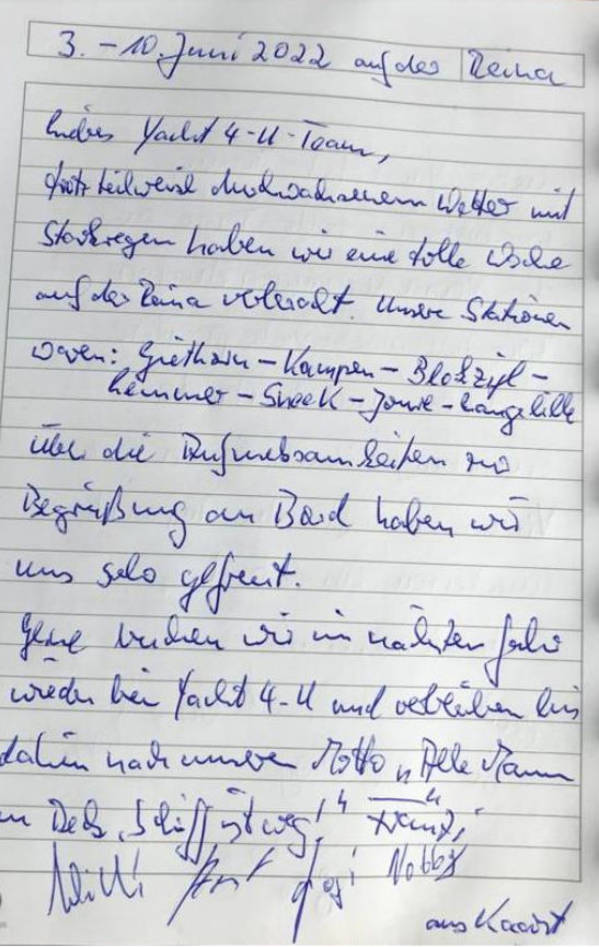 3. - 10. Juni 2022 auf der Reina
Liebes Yacht 4-U-Team,
trotz teilweise durchwachsenem Wetter mit
Starkregen haben wir eine tolle Woche
auf der Reina verbracht. Unsere Stationen
waren: Giethorn - Kampen - Blokzijl -
Lemmer - Sneek - Joure - Langelille
Über die Aufmerksamkeiten zur
Begrüßung an Bord haben wir
uns sehr gefreut.
Gerne buchen wir im nächsten Jahr
wieder bei Yacht 4-U und verbleiben bis
dahin nach unserem Motto "Alle Mann
an Deck, Schiff ist weg!"
Willi Nobby
aus Kaarst